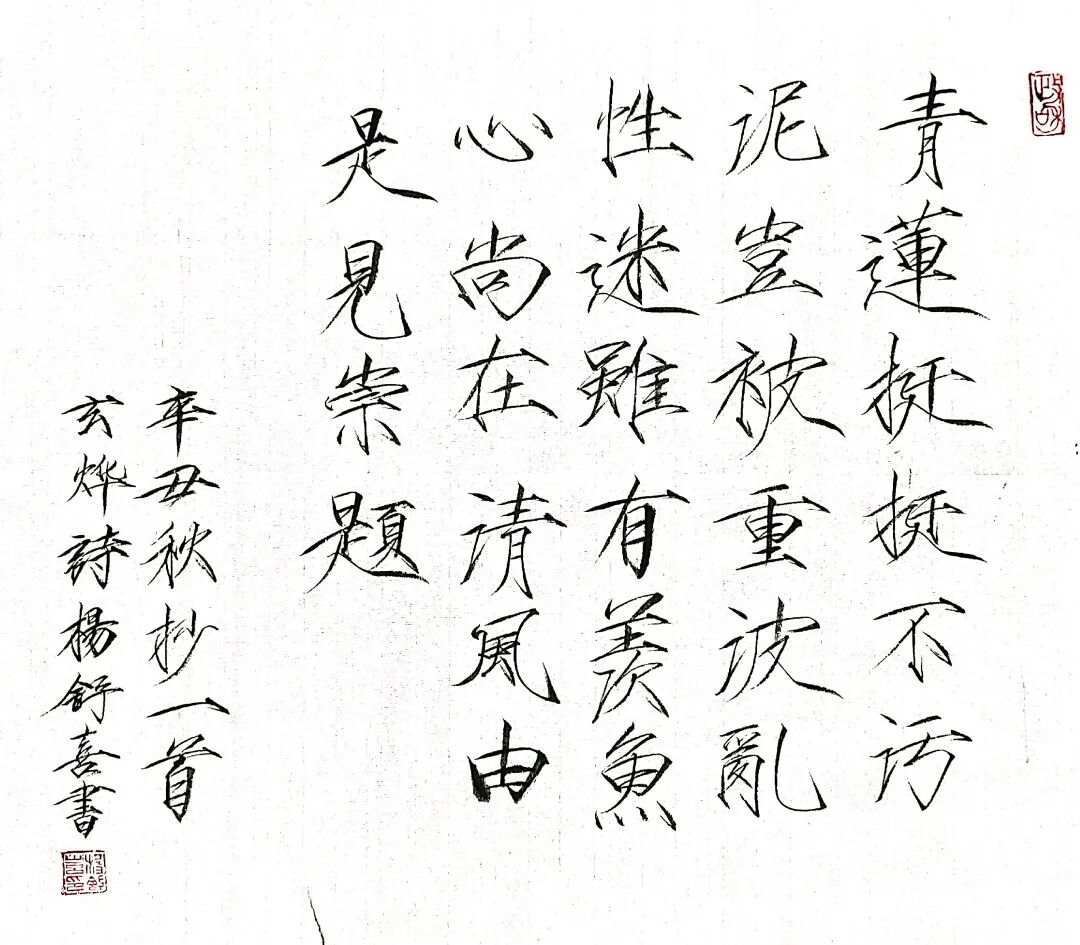 青蓮挺挺不污
泥豈被重波亂
性迷雖有羨魚
心尚在清風由
是見崇題
辛丑秋抄一首
玄燁詩楊舒喜書